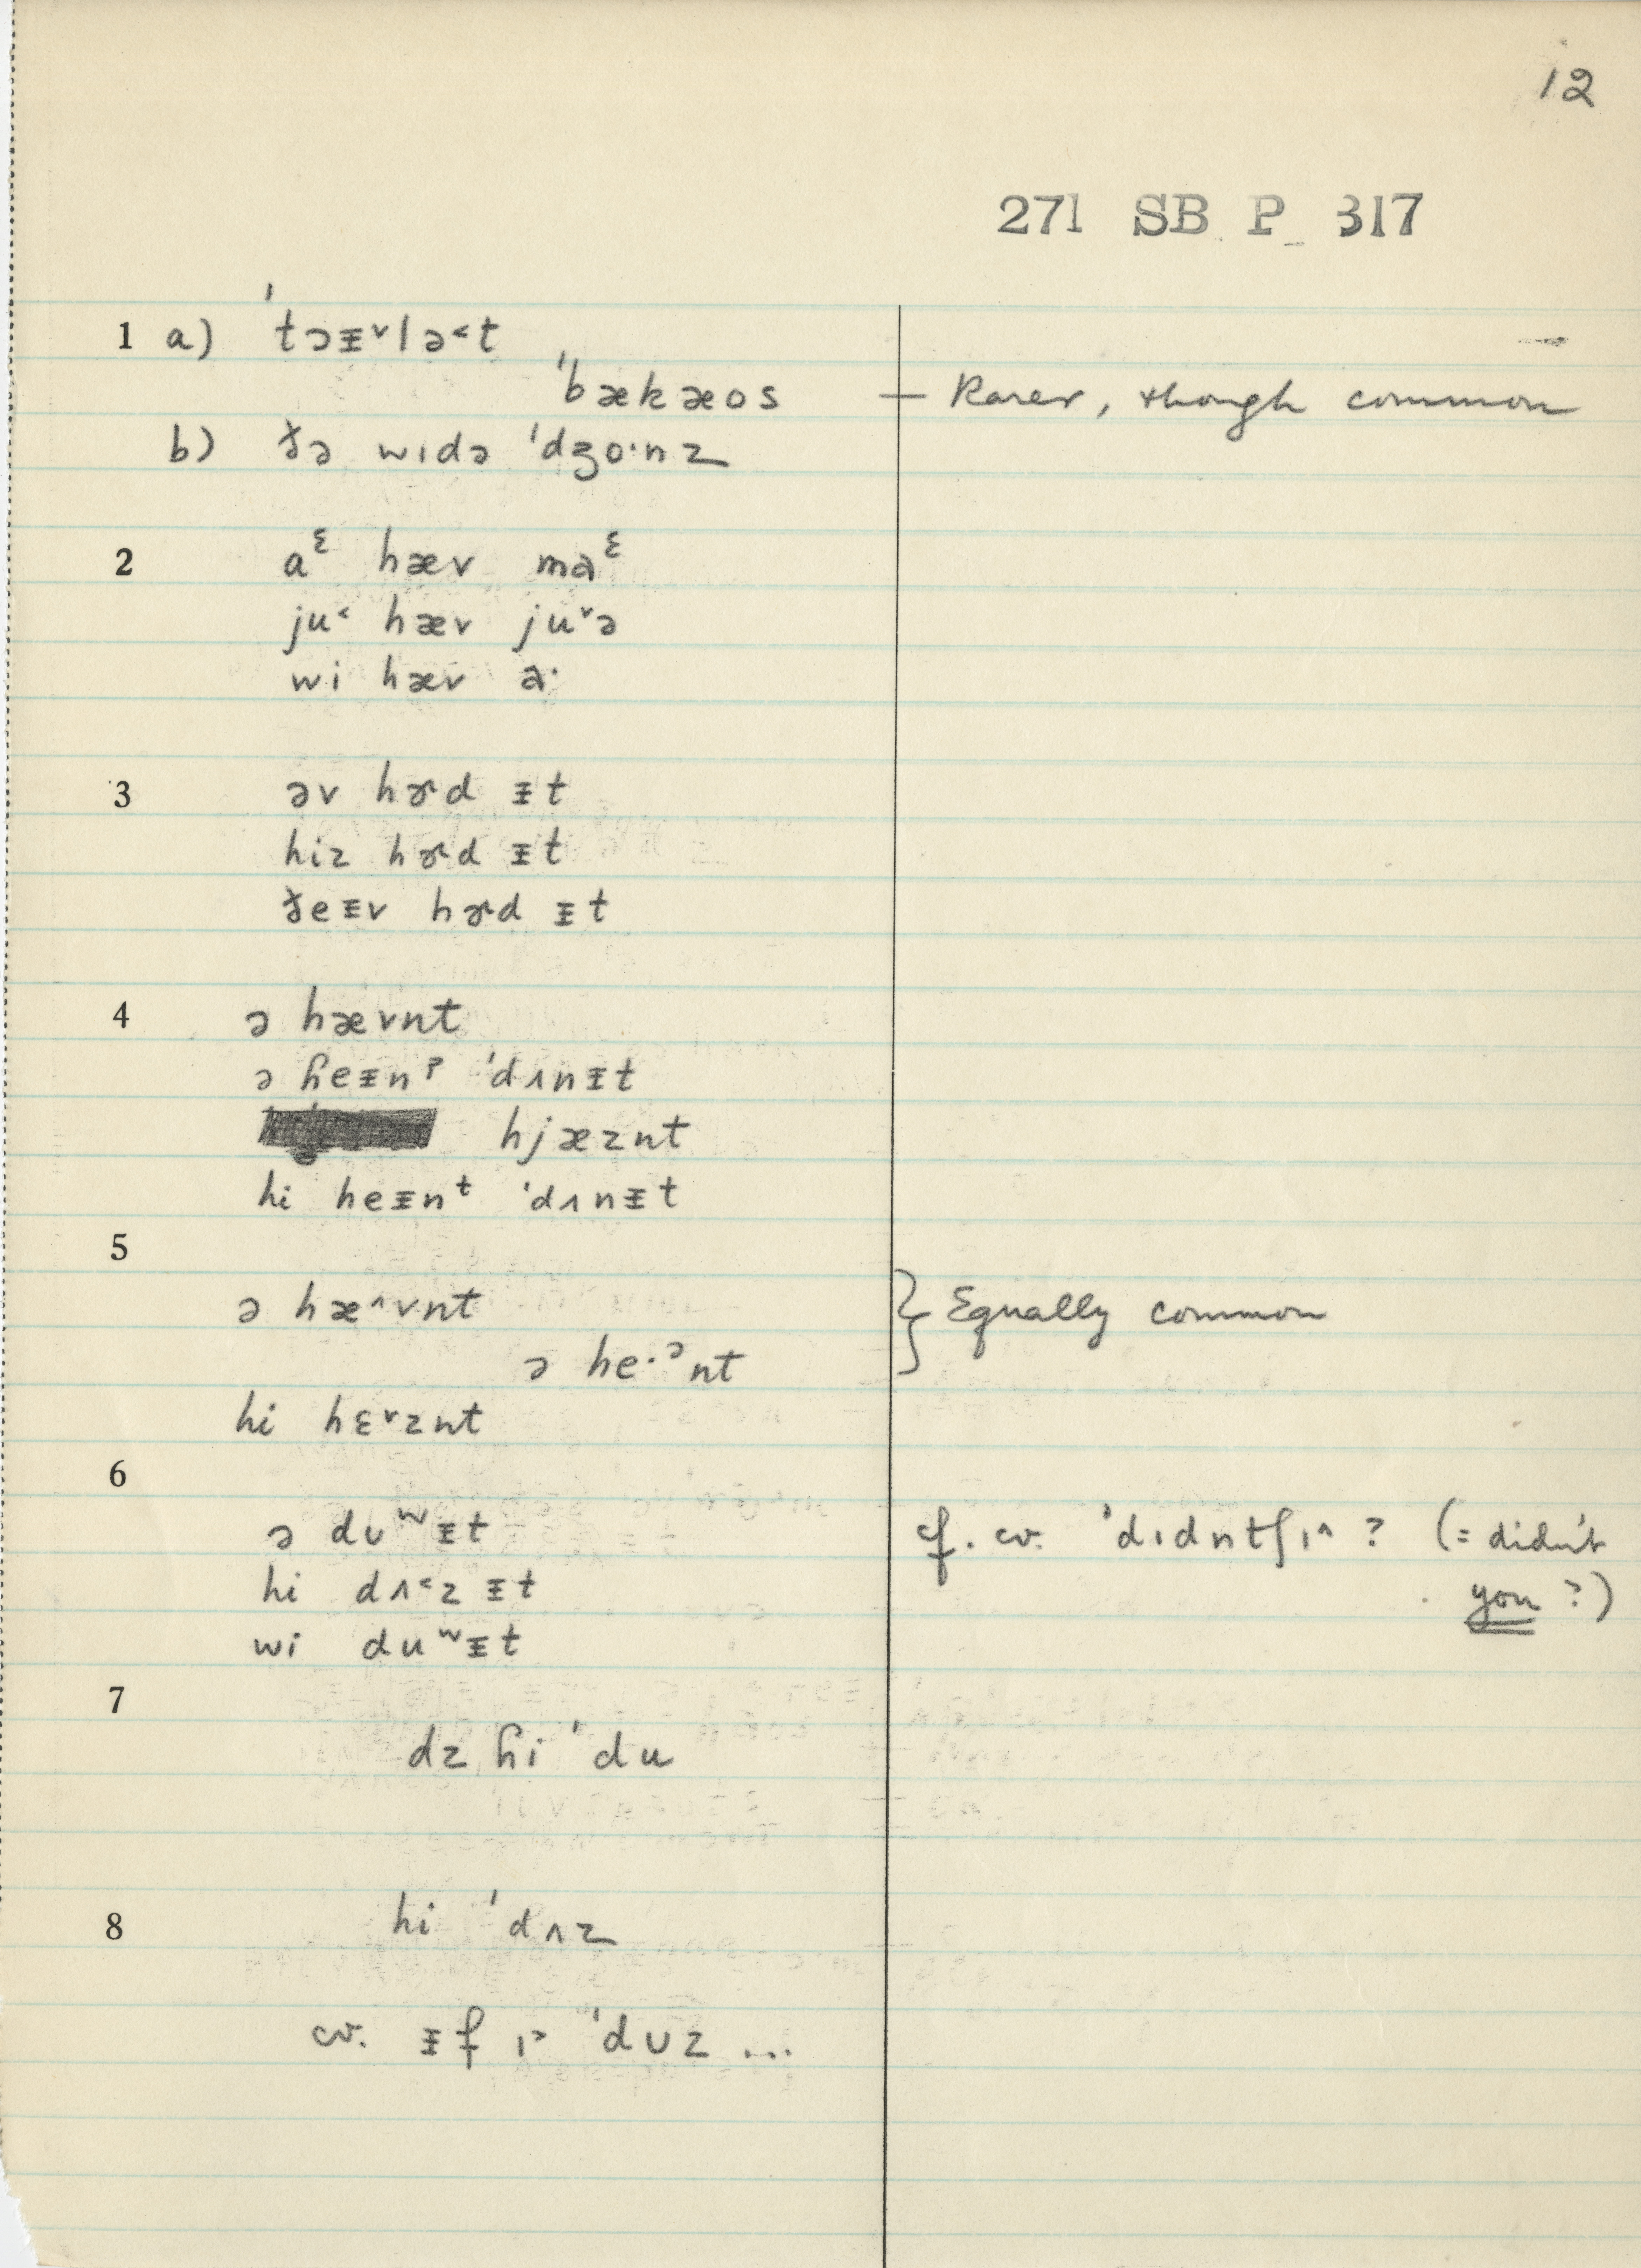 12
271 SB P 317
1 a) ˈtɔᵻ˅lə˂t
ˈbækæos — Rarer, though common
b) ðə wɪdə ˈdʒo·nz
2 aᵋ hæv maᵋ
ju˂ hæv ju˅ə
wi hæv a·
3 əv hɚd ᵻt
hiz hɚd ᵻt
ðeᵻv hɚd ᵻt
4 ə hævnt
ə ɦeᵻnˀ ˈdʌnᵻt
hjæznt
hi heᵻnᵗ ˈdʌnᵻt
5
ə hæ˄vnt } Equally common
ə he·ᵊnt
hi hɛ˅znt
6
ə dʊʷᵻt cf. cv. ˈdɪdntʃɪ˄ ? (= didn't
hi dʌ˂z ᵻt you ?)
wi duʷᵻt
7
dz ɦi ˈdu
8 hi ˈdʌz
cv. ᵻf ɪ˃ ˈdʊz ...